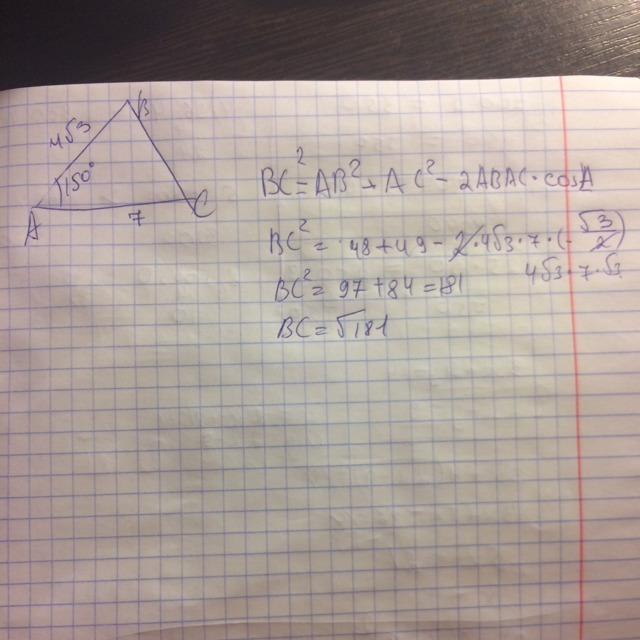 B
4√3
150°
A
7
C
BC² = AB² + AC² - 2ABAC · cosA
BC² = 48 + 49 - 2 · 4√3 · 7 · (-√3/2)
4√3 · 7 · √3
BC² = 97 + 84 = 181
BC = √181